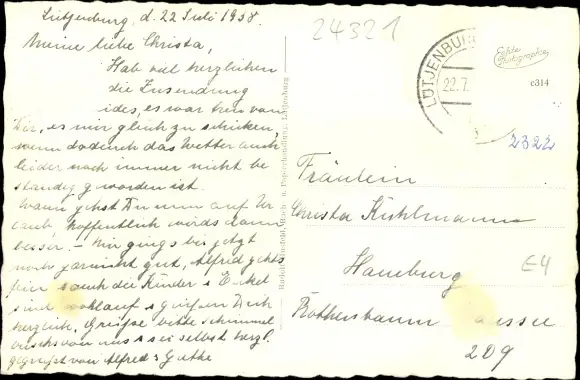 Lütjenburg, d. 22 Juli 1938.
Meine liebe Christa,
Hab viel herzlichen
die Zusendung
ides, es war treu von
Dir, es mir gleich zu schicken,
wenn dadurch das Wetter auch
leider noch immer nicht be
ständig geworden ist.
Wann gehst Du nun auf Ur
laub, hoffentlich wirds dann
besser. - Mir ging's bis jetzt
noch garnicht gut, Alfred gehts
fein, auch die Kinder
sind wohlauf grüßen Dich
herzlich. Grüße bitte
von uns sei selbst herzl.
gegrüßt von Alfred
24321
LÜTJENBURG
22.7.
Echte
Photographie
c314
2322
Fräulein
Christa Kuhlmann
Hamburg
E4
Rothenbaum aussee
209